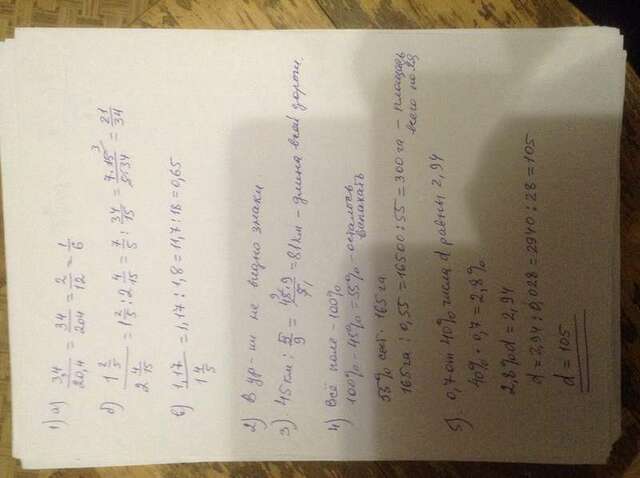 1) а) 3,4/20,4 = 34/204 = 2/12 = 1/6
б) 1 2/5 / 2 4/15 = 1 2/5 : 2 4/15 = 7/5 : 34/15 = 7·15 3/5·34 = 21/34
в) 1,17 / 1 4/5 = 1,17 : 1,8 = 11,7 : 18 = 0,65
2) В ур-ии не видно знаки.
3) 45 км : 5/9 = 45 9·9/5 1 = 81 км – длина всей дороги.
4) Всё поле – 100%
100% – 45% = 55% – осталось вспахать
55% сост. 165 га
165 га : 0,55 = 16500 : 55 = 300 га – площадь всего поля
5). 0,7 от 40% числа d равны 2,94
40% · 0,7 = 2,8%
2,8% d = 2,94
d = 2,94 : 0,028 = 2940 : 28 = 105
d = 105